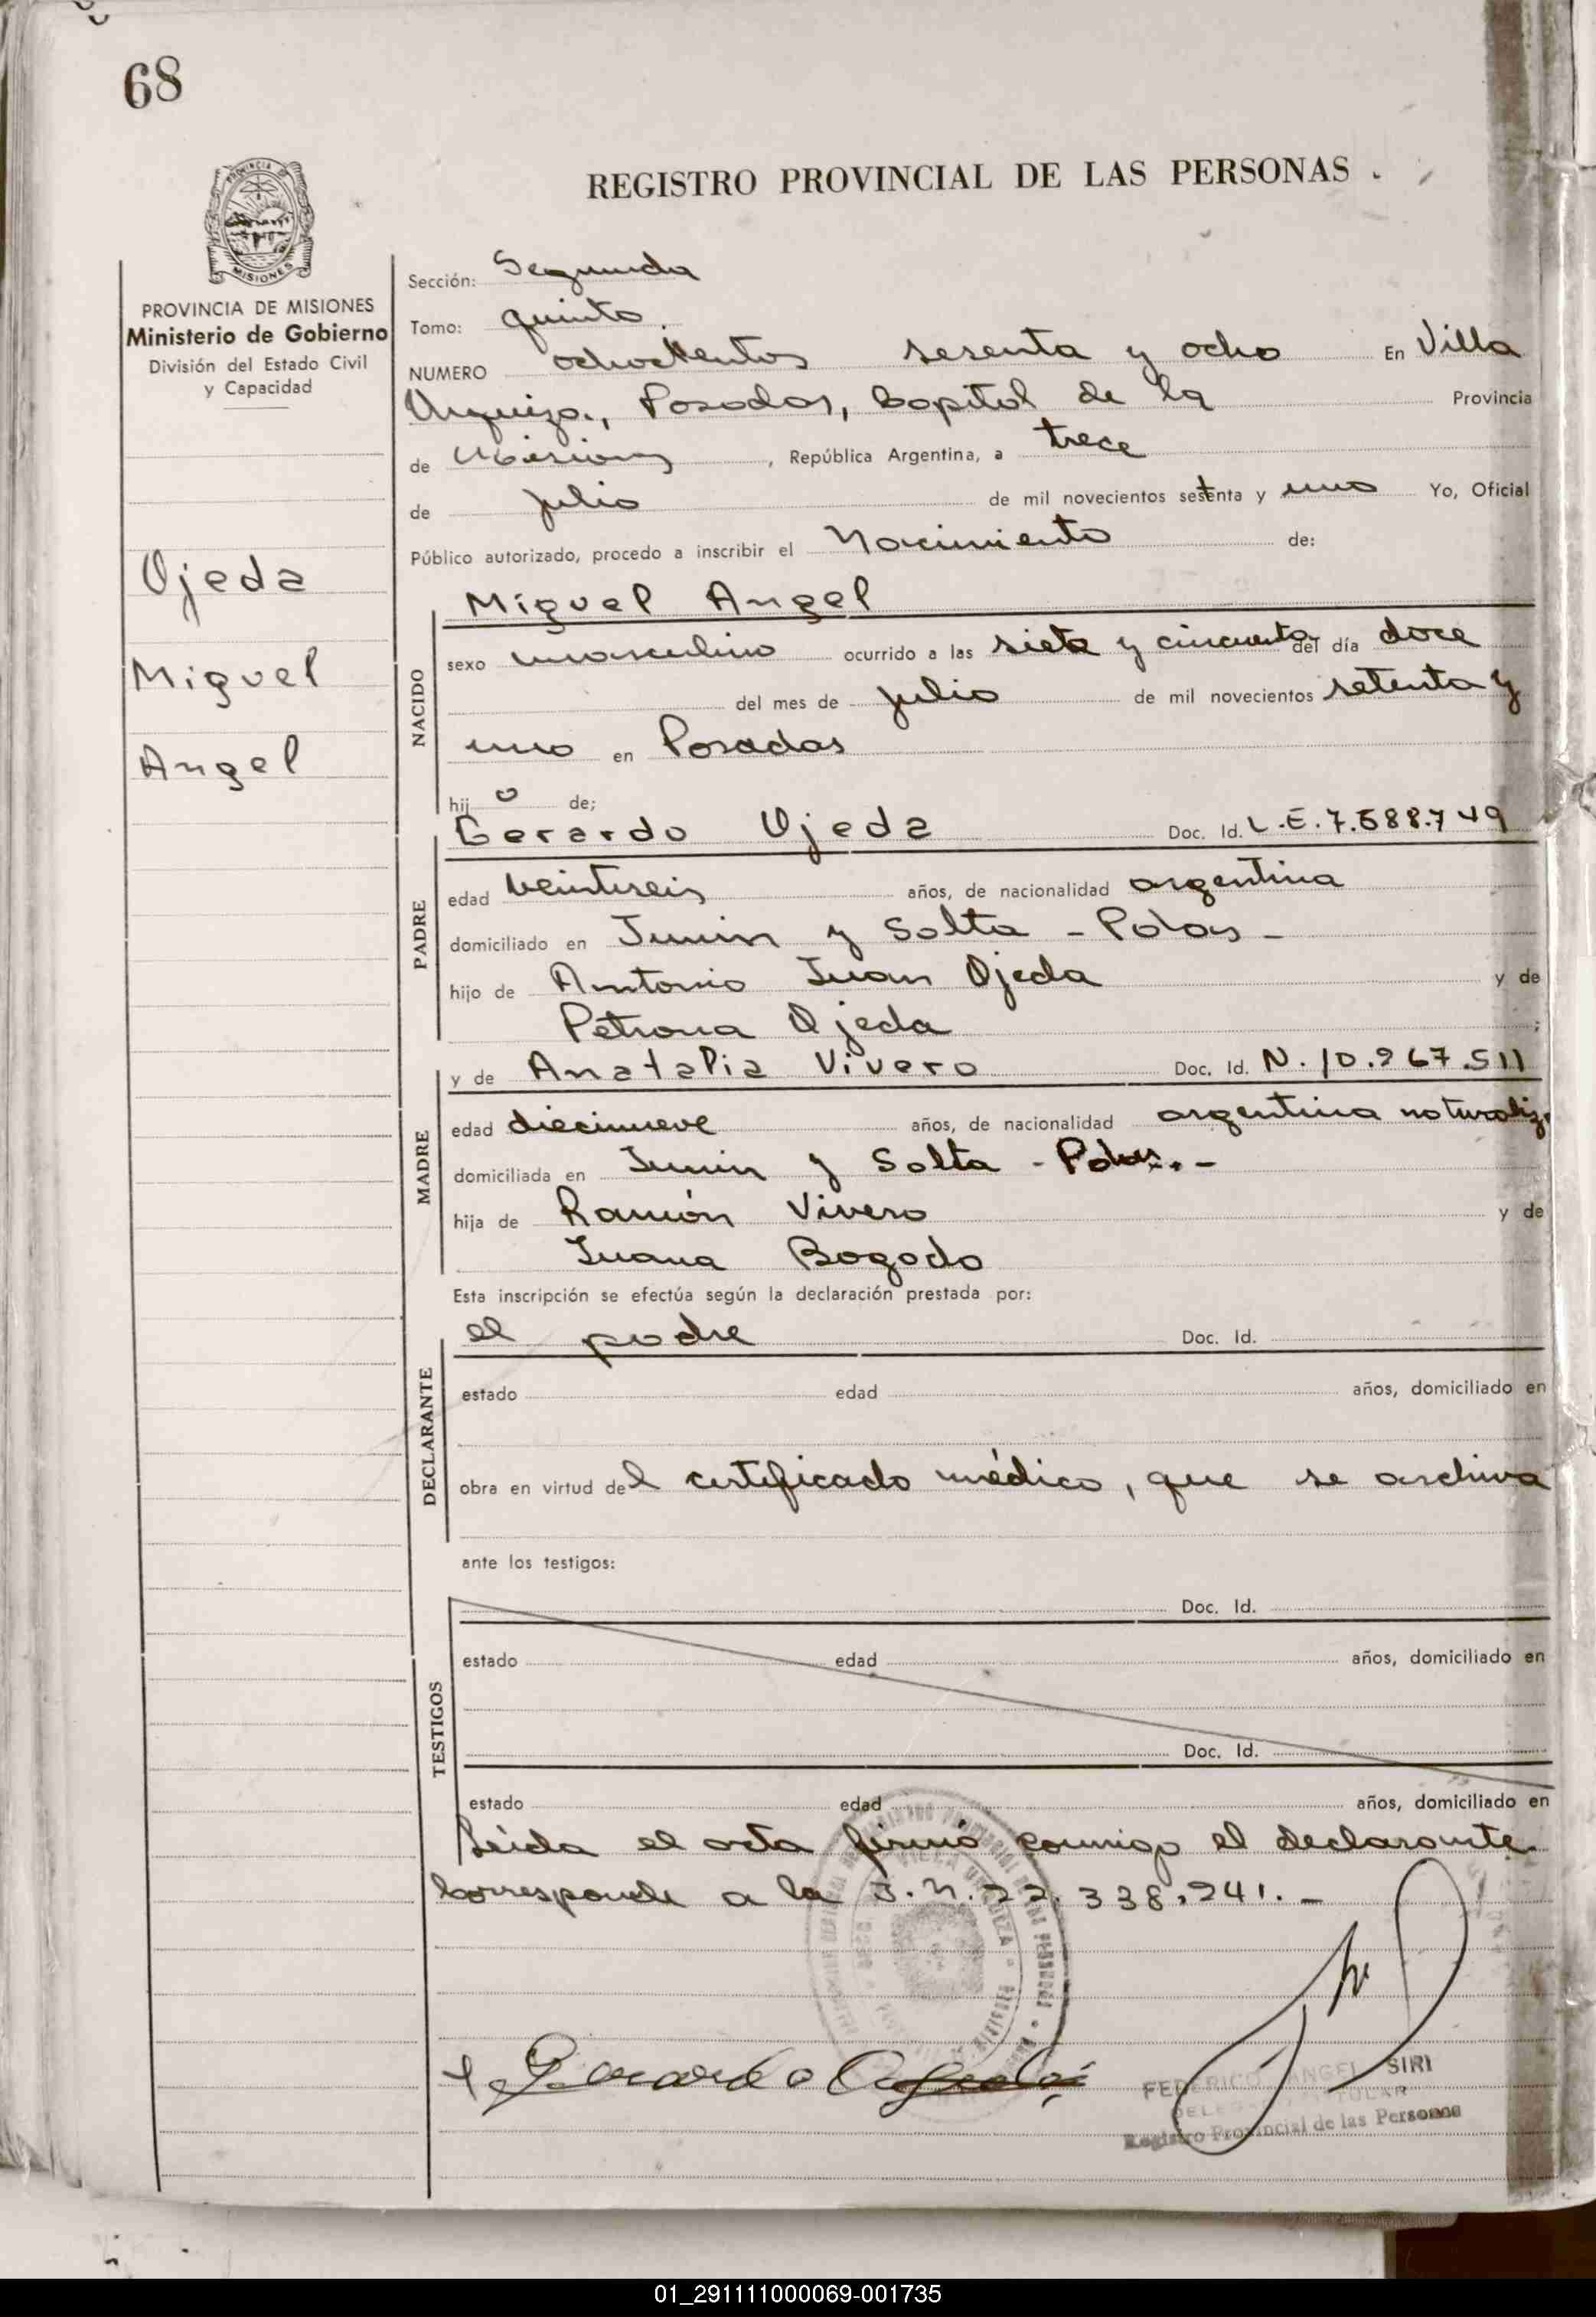 68
REGISTRO PROVINCIAL DE LAS PERSONAS
PROVINCIA
MISIONES
PROVINCIA DE MISIONES
Ministerio de Gobierno
División del Estado Civil
y Capacidad
Ojeda
Miguel
Angel
Sección: Segunda
Tomo: quinto
NUMERO ochocientos sesenta y ocho En Villa
Urquiza., Posadas, Capital de la Provincia
de Misiones, República Argentina, a trece
de julio de mil novecientos setenta y uno Yo, Oficial
Público autorizado, procedo a inscribir el Nacimiento de:
NACIDO
Miguel Angel
sexo masculino ocurrido a las siete y cincuenta del día doce
del mes de julio de mil novecientos setenta y
uno en Posadas
hijo de;
PADRE
Gerardo Ojeda Doc. Id. L.E. 7.588.749
edad veintiseis años, de nacionalidad argentina
domiciliado en Junin y Salta - Pdas -
hijo de Antonio Juan Ojeda y de
Petrona Ojeda ;
MADRE
y de Anatalia Vivero Doc. Id. N. 10.967.511
edad diecinueve años, de nacionalidad argentina naturaliz.
domiciliada en Junin y Salta - Pdas. -
hija de Ramón Vivero y de
Juana Bogado
Esta inscripción se efectúa según la declaración prestada por:
DECLARANTE
el padre Doc. Id.
estado edad años, domiciliado en
obra en virtud del certificado médico, que se archiva
ante los testigos:
TESTIGOS
Doc. Id.
estado edad años, domiciliado en
Doc. Id.
estado edad años, domiciliado en
Leida el acta firmó conmigo el declarante.
Corresponde a la I.N. 22.338.241. -
Gerardo Ojeda
FEDERICO ANGEL SIRI
DELEGADO TITULAR
Registro Provincial de las Personas
01_291111000069-001735